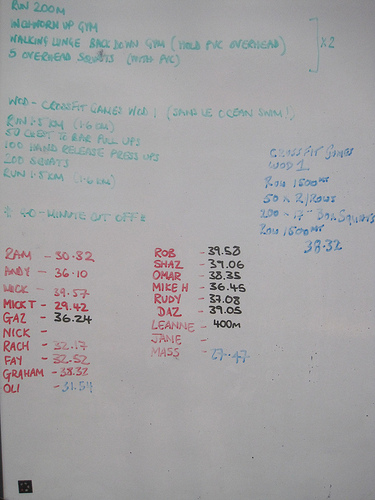 RUN 200M
INCHWORM UP GYM
WALKING LUNGE BACK DOWN GYM (HOLD PVC OVERHEAD)
5 OVERHEAD SQUATS (WITH PVC)
x 2
WOD - CROSSFIT GAMES WOD 1 (SANS LE OCEAN SWIM!)
RUN 1.5 KM (1.6 KM)
50 CHEST TO BAR PULL UPS
100 HAND RELEASE PRESS UPS
200 SQUATS
RUN 1.5 KM (1.6 KM)
40-MINUTE CUT OFF
CROSSFIT GAMES
WOD 1
ROW 1500
50 x R/ROWS
BOX SQUATS
ROW 1500
38.32
RAM - 30.82
ANDY - 36.10
- 39.57
MICK T - 29.42
GAZ - 36.24
NICK -
RACH - 32.17
FAY - 32.52
GRAHAM - 38.32
OLI - 31.54
ROB - 39.58
SHAZ - 39.06
OMAR - 38.35
MIKE H - 36.45
RUDY - 37.08
DAZ - 39.05
LEANNE - 400M
JANE -
MASS - 27.47